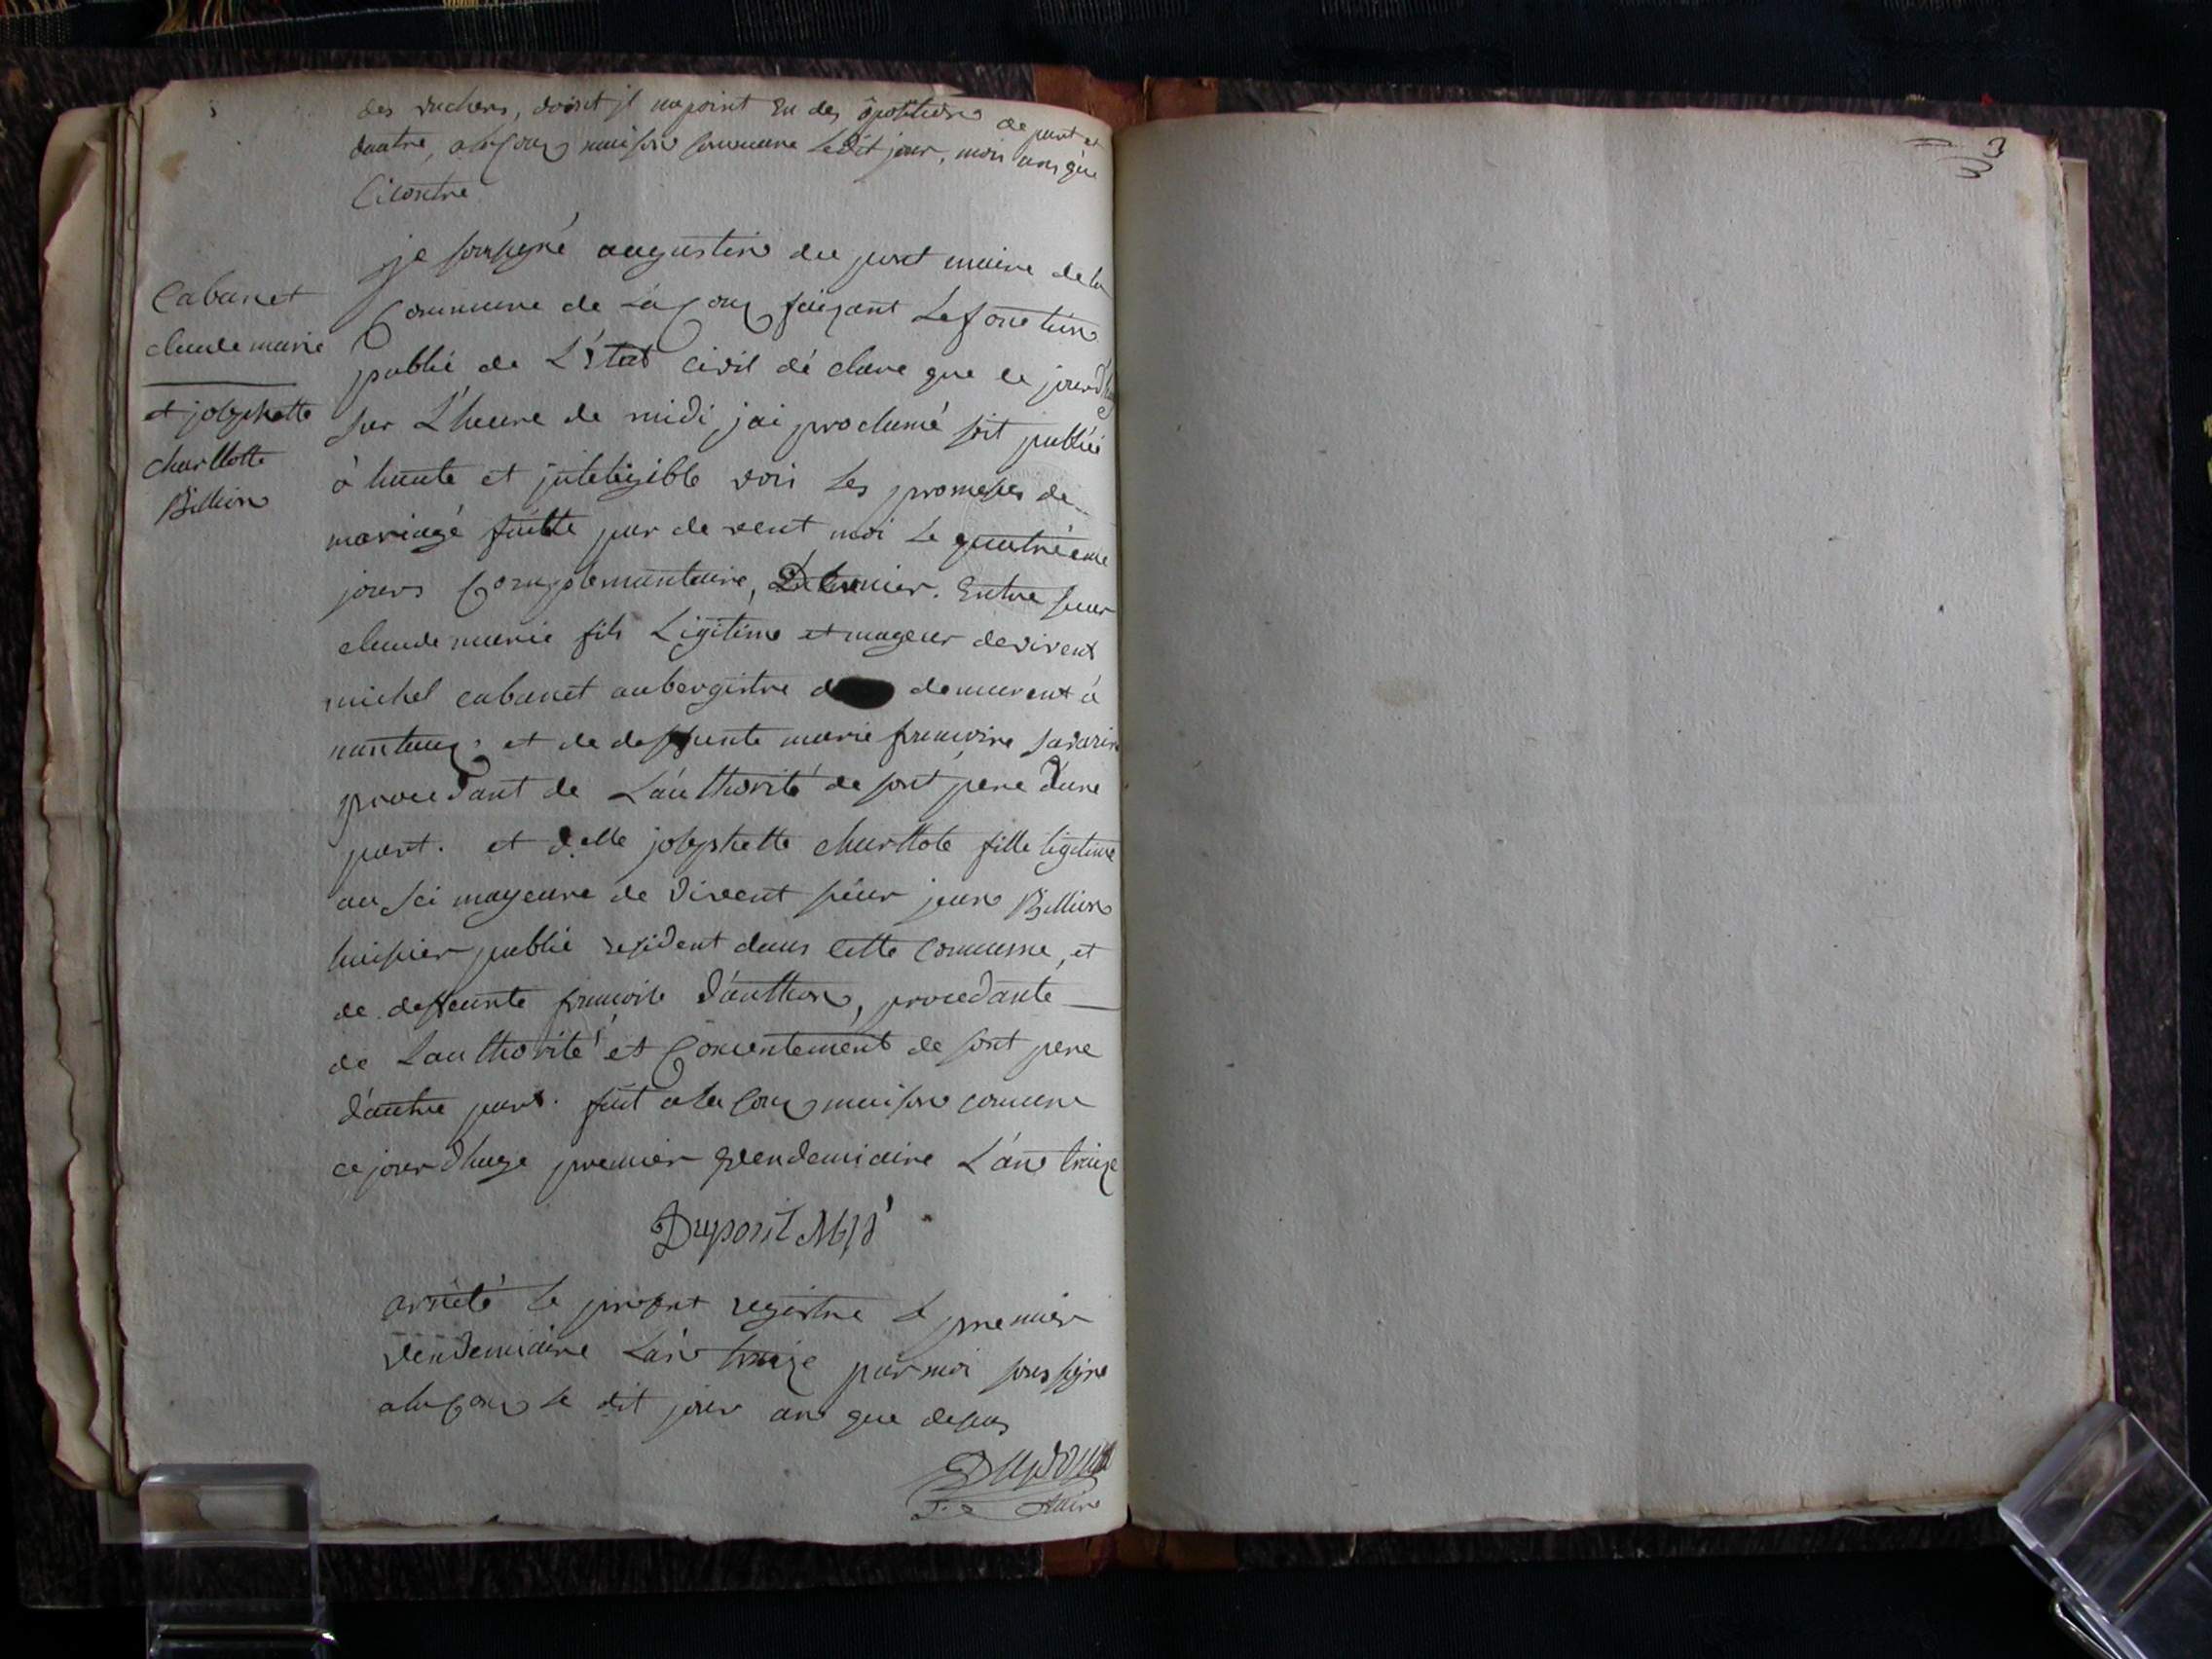 des ruchers, doint jl na point Eu des opositions de part et
dautre, a laçoux maison commune Ledit jour, mois ans que
Cicontre
Cabanet
claude marie
et josephette
charllotte
Billion
je sousigné augustin du pont maire de la
Commune de La Coux faizant Le fonetion
publié de L'état civil dé clare que ce jourd'huy
sur L'heure de midi, jai proclamé soit publié
à haute et jnteligible voir les promesses de
mariage faitte par de vent moi le quatriéme
jours Complementaire, Dernier. Entre sieur
claude marie fils Ligitime et mageur devivent
michel cabanet aubergistre demeurent à
nantuax et de deffunte marie francoise Savarin
procedant de L'authorité de sont pere d'une
part. et delle josephette charllote fille ligitime
au sci mageure de vivent siéur jean Billion
huissier publié resident dans Cette Commune, et
de deffeunte francoise d'anthon, procedante
de Lauthorité et Consentement de sont pere
d'autre part. fait a la Coux maison comune
ce jourdhuye premier vendemiaire L'an traize
Dupont M
arrêté le present registre le premier
vendemiaire L'an traize par moi sous signé
a la Coux le dit jour an que desus
Dupont
maire